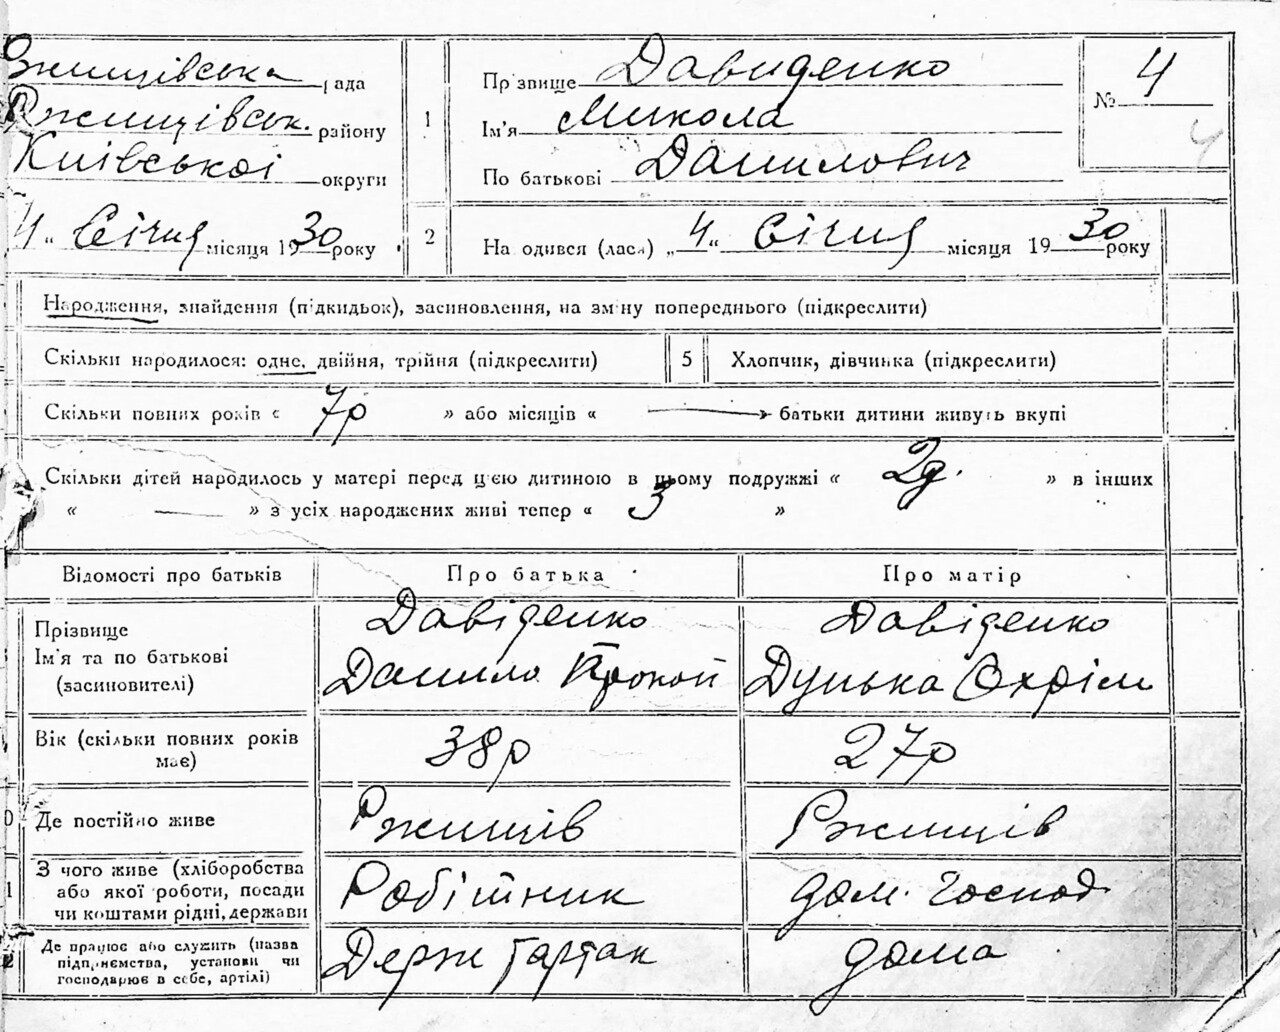 Ржищівська рада
Ржищівськ. району
Київської округи
4 „ Січня місяця 1930 року
1
Прізвище Давиденко
Ім'я Микола
По батькові Данилович
№ 4
4
2
На одився (лася) „4“ Січня місяця 1930 року
Народження, знайдення (підкидьок), засиновлення, на зміну попереднього (підкреслити)
Скільки народилося: одне, двійня, трійня (підкреслити)
5
Хлопчик, дівчинка (підкреслити)
Скільки повних років « 7р » або місяців « — » батьки дитини живуть вкупі
Скільки дітей народилось у матері перед цією дитиною в цьому подружжі « 2д. » в інших
« — » з усіх народжених живі тепер « 3 »
Відомості про батьків
Про батька
Про матір
Прізвище
Ім'я та по батькові
(засиновителі)
Давіденко
Данило Прокоп
Давіденко
Дунька Охрім
Вік (скільки повних років
має)
38р
27р
0
Де постійно живе
Ржищів
Ржищів
1
З чого живе (хліборобства
або якої роботи, посади
чи коштами рідні, держави
Робітник
дом. господ
2
Де працює або служить (назва
підприємства, установи чи
господарює в себе, артілі)
Держ тартак
дома